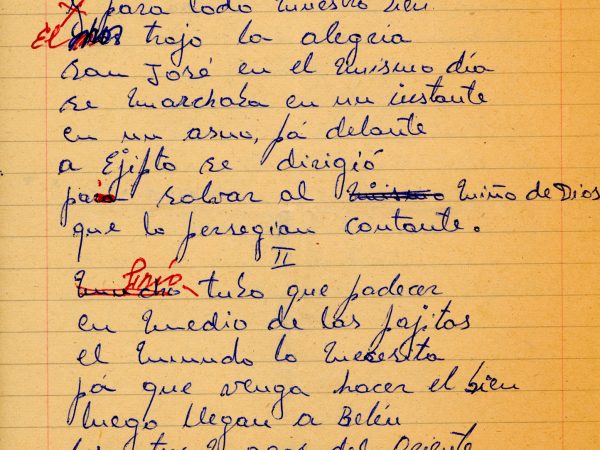 para todo nuestro bien
El trajo la alegria
San José en el mismo día
se marchaba en un instante
en un asno, pá delante
a Ejipto se dirigió
para salvar al mismo niño de Dios
que lo persegian contante.
II
mucho Frió tubo que padecer
en medio de las pajitas
el mundo lo necesita
pá que venga hacer el bien
luego llegan a Belén
los tres magos del Oriente